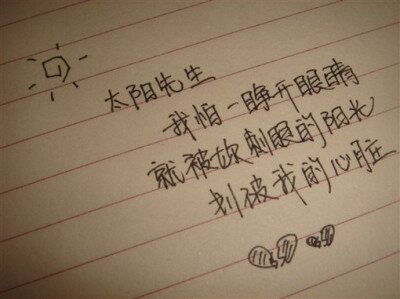 太阳先生
我怕一睁开眼睛
就被刺眼的阳光
划被我的心脏